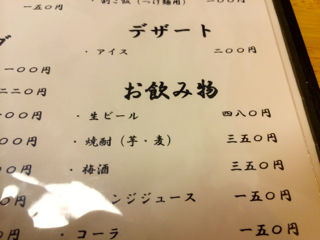 一五〇円
割ご飯（つけ麺用） 一〇〇円
デザート
・アイス 二〇〇円
一〇〇円
二二〇円
お飲み物
・生ビール 四八〇円
〇〇円
・焼酎（芋・麦） 三五〇円
〇〇円
・梅酒 三五〇円
〇円
ンジジュース 一五〇円
〇円
・コーラ 一五〇円
円